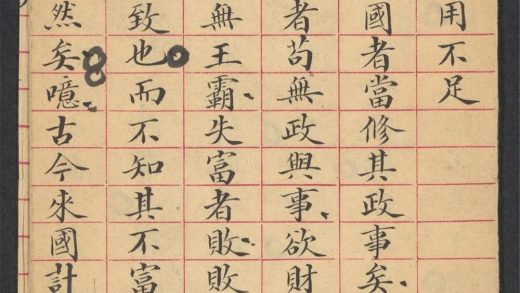 用不足
國者當修其政事矣
者苟無政與事欲財
無王霸失富者敗敗
致也而不知其不富
然矣噫古今來國計